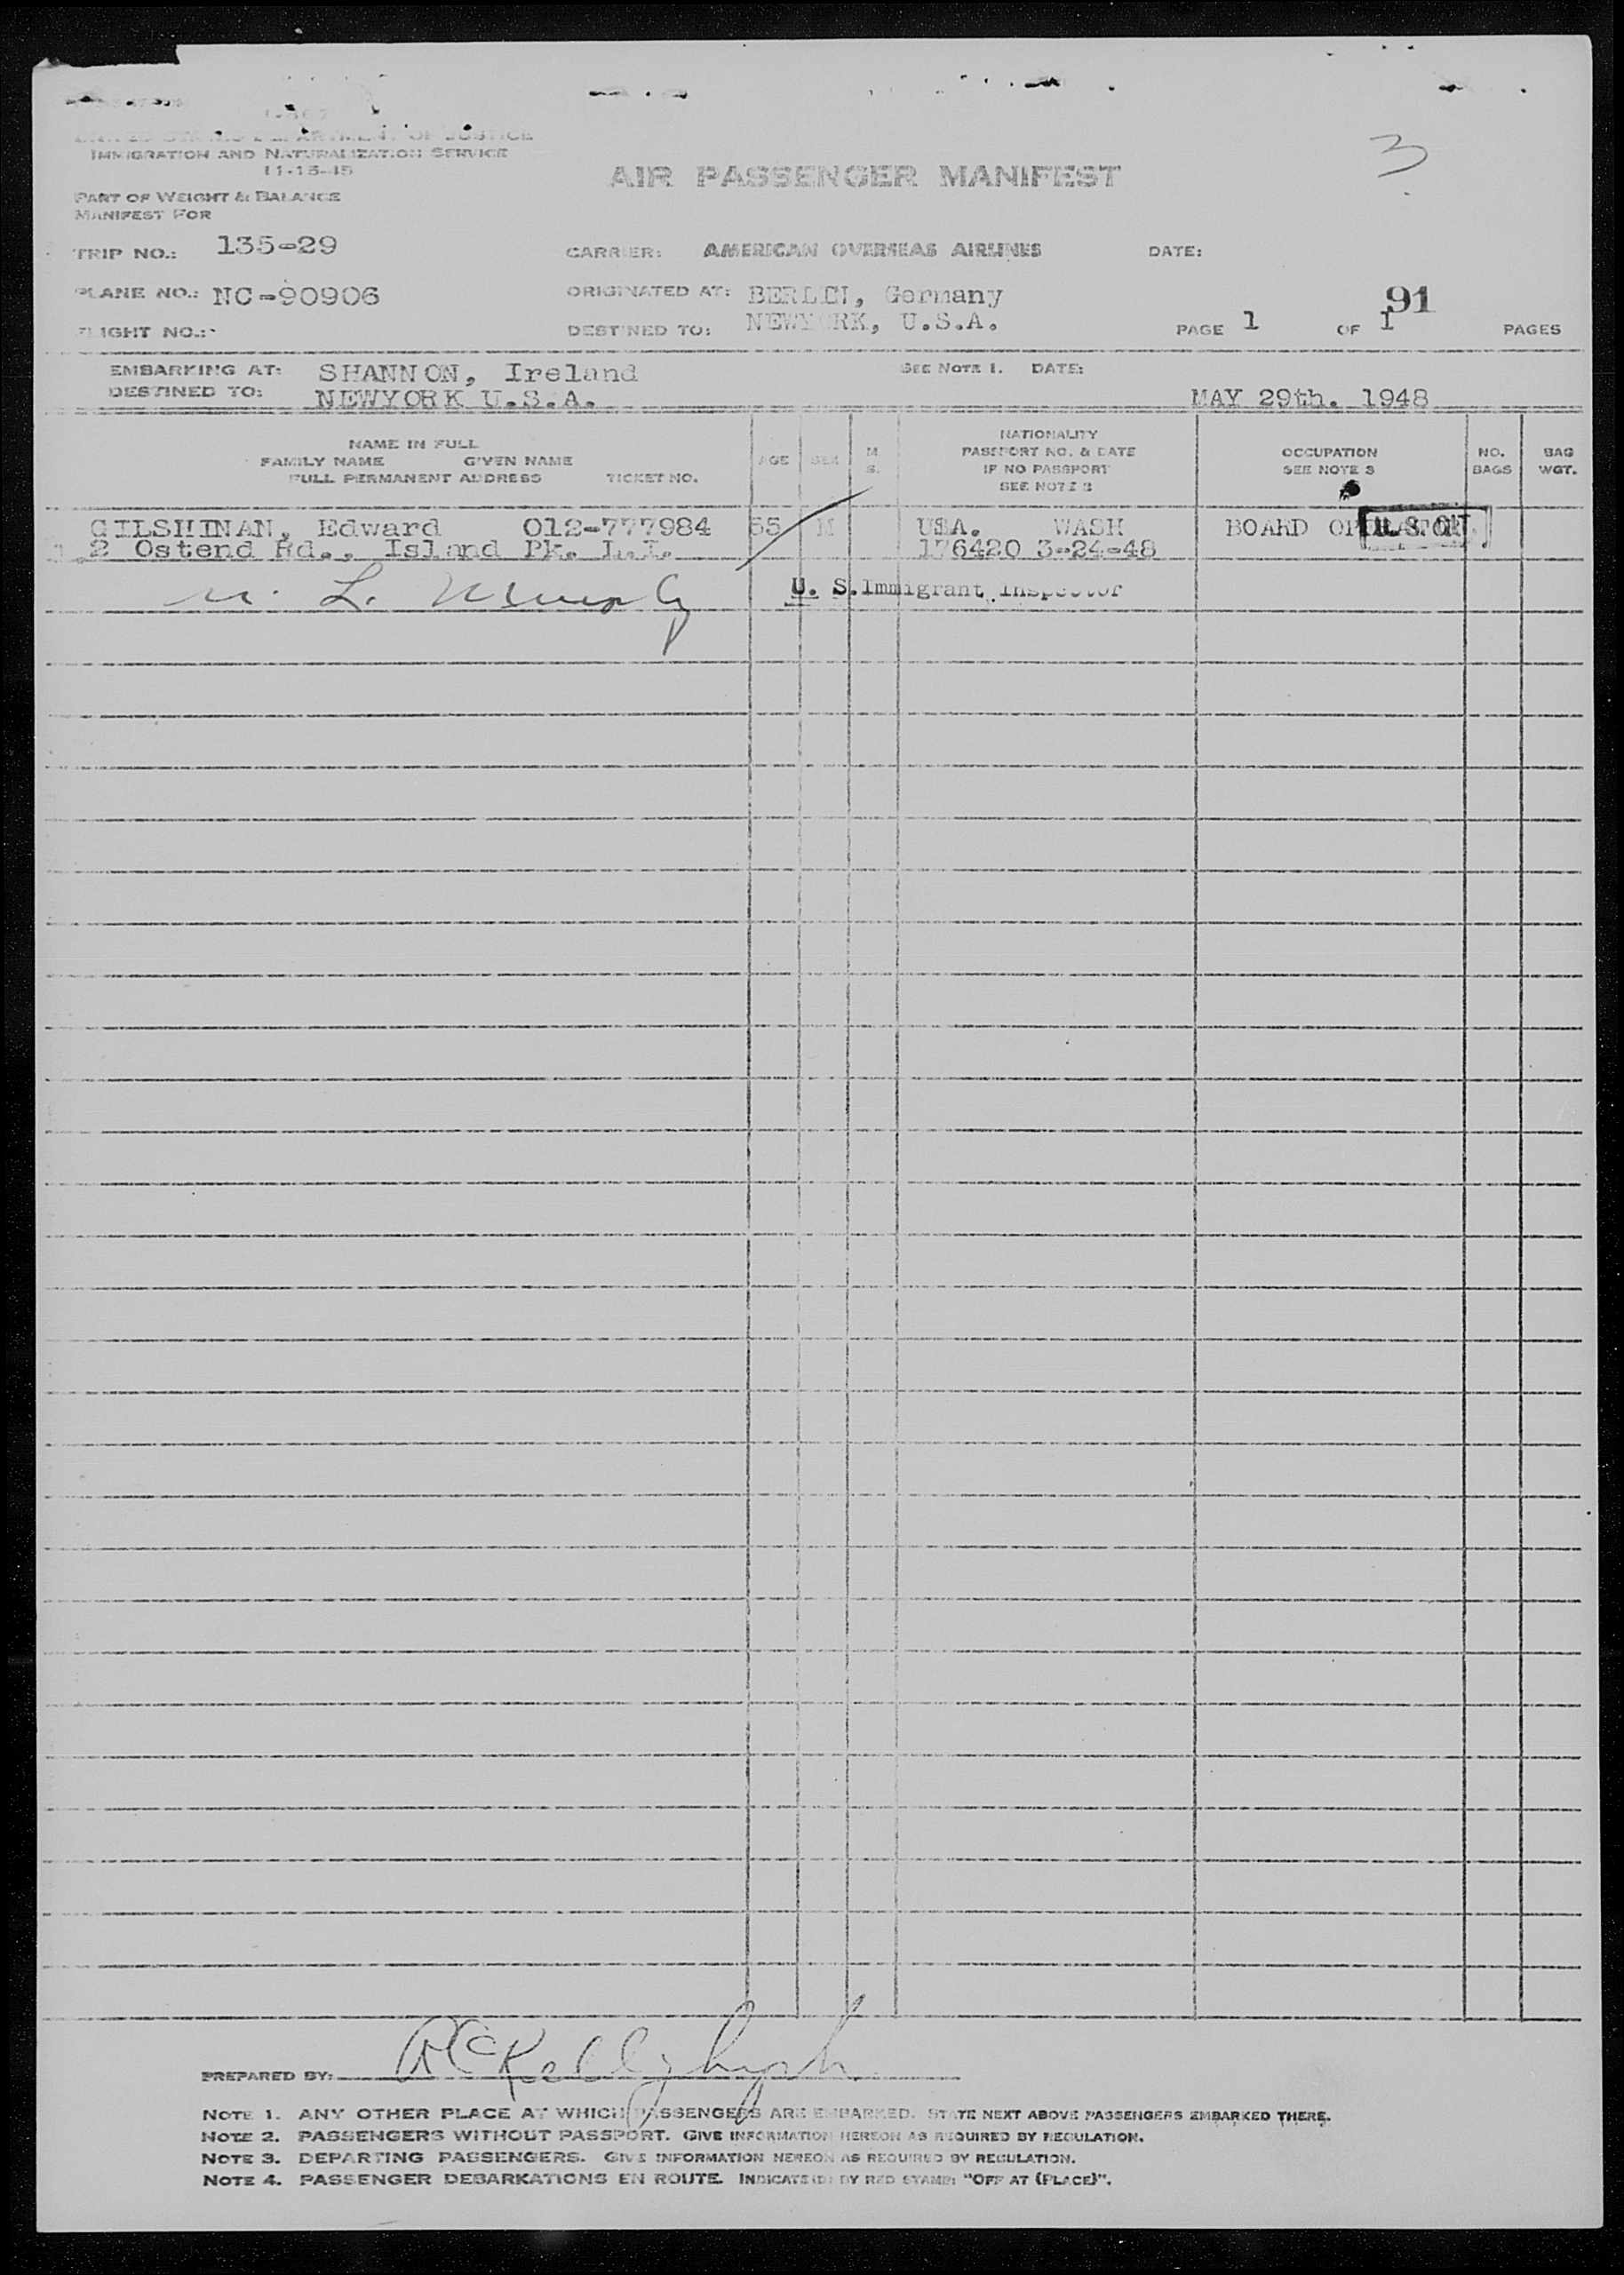 I-507
UNITED STATES DEPARTMENT OF JUSTICE
IMMIGRATION AND NATURALIZATION SERVICE
11-15-45
3
AIR PASSENGER MANIFEST
PART OF WEIGHT & BALANCE
MANIFEST FOR
TRIP NO.: 135-29 CARRIER: AMERICAN OVERSEAS AIRLINES DATE:
PLANE NO.: NC-90906 ORIGINATED AT: BERLIN, Germany 91
FLIGHT NO.: DESTINED TO: NEWYORK, U.S.A. PAGE 1 OF 1 PAGES
EMBARKING AT: SHANNON, Ireland SEE NOTE 1. DATE:
DESTINED TO: NEWYORK U.S.A. MAY 29th. 1948
NAME IN FULL
FAMILY NAME GIVEN NAME
FULL PERMANENT ADDRESS TICKET NO.
AGE SEX M. S.
NATIONALITY
PASSPORT NO. & DATE
IF NO PASSPORT
SEE NOTE 2
OCCUPATION
SEE NOTE 3
NO. BAGS
BAG WGT.
GILSHINAN, Edward 012-777984 55 M USA. WASH BOARD OPERATOR
1 2 Ostend Rd., Island Pk. L.I. 176420 3-24-48
U. S. Immigrant Inspector
PREPARED BY:
NOTE 1. ANY OTHER PLACE AT WHICH PASSENGERS ARE EMBARKED. STATE NEXT ABOVE PASSENGERS EMBARKED THERE.
NOTE 2. PASSENGERS WITHOUT PASSPORT. GIVE INFORMATION HEREON AS REQUIRED BY REGULATION.
NOTE 3. DEPARTING PASSENGERS. GIVE INFORMATION HEREON AS REQUIRED BY REGULATION.
NOTE 4. PASSENGER DEBARKATIONS EN ROUTE. INDICATE(D) BY RED STAMP: "OFF AT (PLACE)".